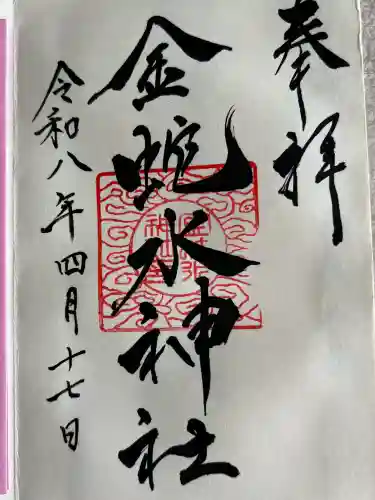 奉拝
金蛇水神社
令和八年四月十七日